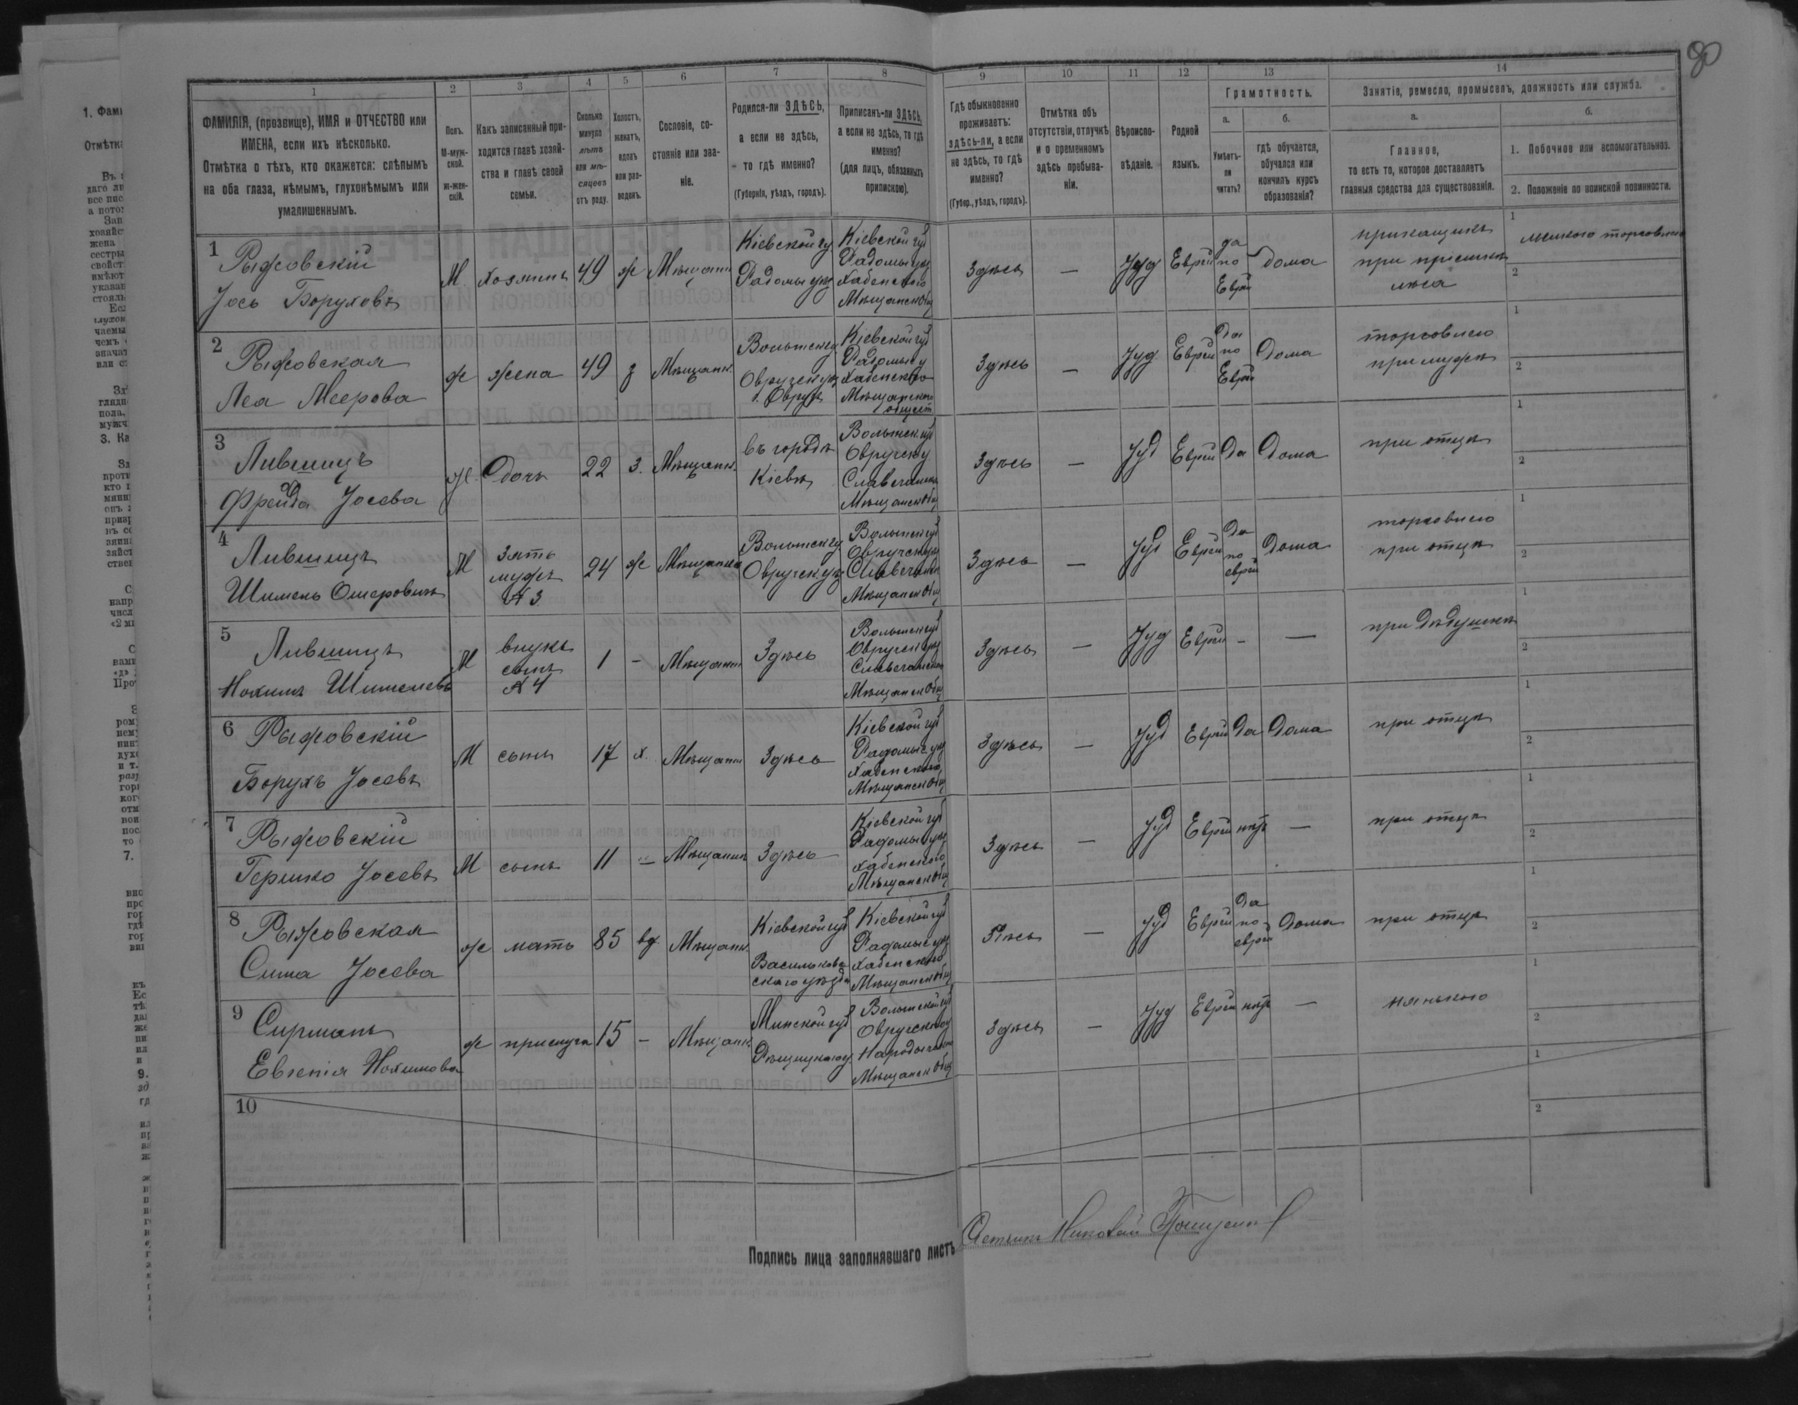 80
1 2 3 4 5 6 7 8 9 10 11 12 13 14
ФАМИЛІЯ, (прозвище), ИМЯ и ОТЧЕСТВО или
ИМЕНА, если ихъ нѣсколько.
Отмѣтка о тѣхъ, кто окажется: слѣпымъ
на оба глаза, нѣмымъ, глухонѣмымъ или
умалишеннымъ.
Полъ.
М-муж-
ской.
ж-жен-
скій.
Какъ записанный при-
ходится главѣ хозяй-
ства и главѣ своей
семьи.
Сколько
минуло
лѣтъ
или мѣ-
сяцевъ
отъ роду.
Холостъ,
женатъ,
вдовъ
или раз-
веденъ.
Сословіе, со-
стояніе или зва-
ніе.
Родился-ли ЗДѢСЬ,
а если не здѣсь,
то гдѣ именно?
(Губернія, уѣздъ, городъ).
Приписанъ-ли ЗДѢСЬ,
а если не здѣсь, то гдѣ
именно?
(для лицъ, обязанныхъ
припискою).
Гдѣ обыкновенно
проживаетъ:
здѣсь-ли, а если
не здѣсь, то гдѣ
именно?
(Губер., уѣздъ, городъ).
Отмѣтка объ
отсутствіи, отлучкѣ
и о временномъ
здѣсь пребыва-
ніи.
Вѣроиспо-
вѣданіе.
Родной
языкъ.
Грамотность.
а.
Умѣетъ-
ли
читать?
б.
гдѣ обучается,
обучался или
кончилъ курсъ
образованія?
Занятіе, ремесло, промыселъ, должность или служба.
а.
Главное,
то есть то, которое доставляетъ
главныя средства для существованія.
б.
1. Побочное или вспомогательное.
2. Положеніе по воинской повинности.
1
Рыжовскій
Іосъ Боруховъ
М
хозяинъ
49
ж
Мѣщан
Кіевской гу
Радомы у
Кіевской губ
Радомы у
Хабенского
Мѣщанск общ
Здѣсь
—
Іуд
Еврей
да
по
Еврей
дома
прикащикъ
при пріемкѣ
лѣса
мелкого торговлею
2
Рыжовская
Леа Меерова
ж
жена
49
з
Мѣщанк
Волынск гу
Овручск у
г. Овручъ
Кіевской губ
Радомы у
Хабенского
Мѣщанского
общест
Здѣсь
—
Іуд
Еврей
Да
по
Еврей
Дома
торговлею
при мужѣ
3
Лившицъ
Фрейда Іосева
ж
Дочь
22
з.
Мѣщанк
въ городѣ
Кіевѣ
Волынск губ
Овручск у
Мѣщанск общ
Здѣсь
—
Іуд
Еврей
Да
Дома
при отцѣ
4
Лившицъ
Шимель Ошеровичъ
М
Зять
мужъ
№ 3
24
ж
Мѣщанин
Волынск гу
Овручск у
Волынск губ
Овручск у
Мѣщанск общ
Здѣсь
—
Іуд
Еврей
Да
по
еврей
Дома
торговлею
при отцѣ
5
Лившицъ
Нохимъ Шимелевъ
М
внукъ
сынъ
№ 4
1
—
Мѣщанин
Здѣсь
Волынск губ
Овручск у
Мѣщанск общ
Здѣсь
—
Іуд
Еврей
—
—
при Дѣдушкѣ
6
Рыжовскій
Борухъ Іосевъ
М
сынъ
17
х.
Мѣщанин
Здѣсь
Кіевской губ
Радомы у
Хабенского
Мѣщанск общ
Здѣсь
—
Іуд
Еврей
Да
Дома
при отцѣ
7
Рыжовскій
Гершко Іосевъ
М
сынъ
11
—
Мѣщанинъ
Здѣсь
Кіевской губ
Радомы у
Хабенского
Мѣщанск общ
Здѣсь
—
Іуд
Еврей
нѣтъ
—
при отцѣ
8
Рыжовская
Сима Іосева
ж
мать
85
вд
Мѣщанк
Кіевской губ
Васильков-
ского уѣзда
Кіевской губ
Радомы у
Хабенского
Мѣщанск общ
Здѣсь
—
Іуд
Еврей
Да
по
еврей
Дома
при отцѣ
9
Сирманъ
Евгенія Нохимова
ж
прислуга
15
—
Мѣщанк
Минской губ
Рѣчицкого у
Волынской губ
Овручского у
Мѣщанск общ
Здѣсь
—
Іуд
Еврей
нѣтъ
—
нянькою
10
Подпись лица заполнявшаго листъ
Николай